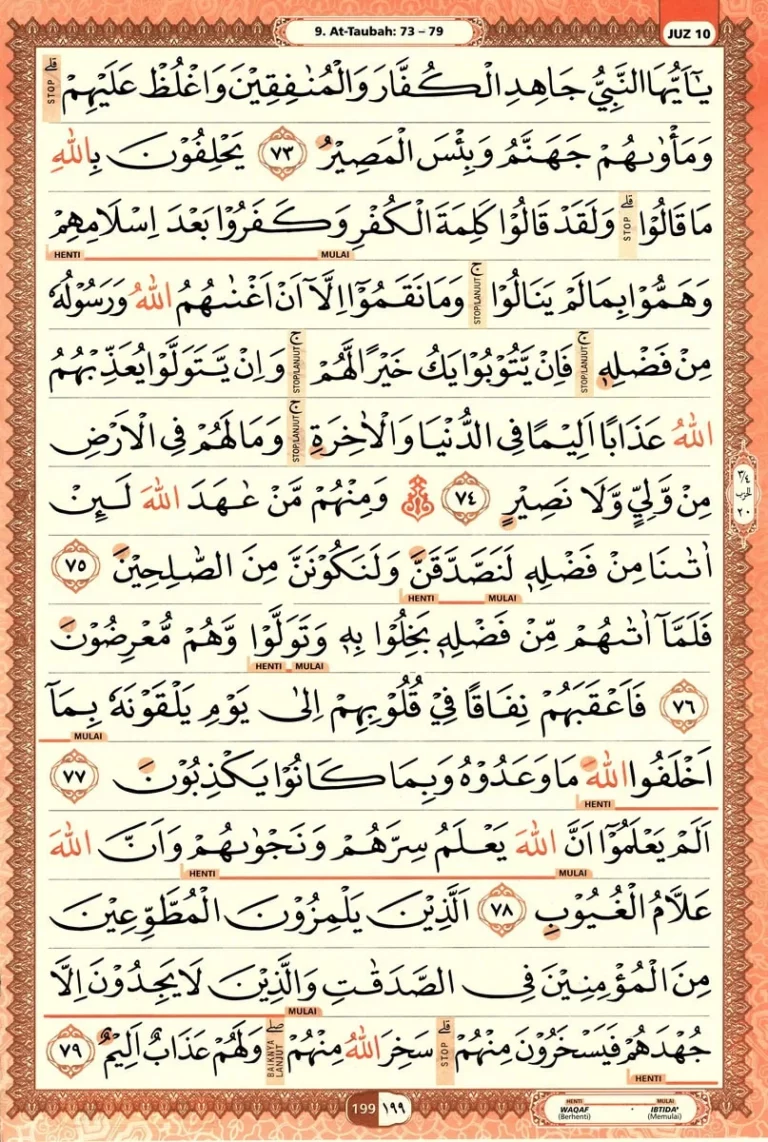 9. At-Taubah: 73 – 79
JUZ 10
يٰٓاَيُّهَا النَّبِيُّ جَاهِدِ الْكُفَّارَ وَالْمُنٰفِقِيْنَ وَاغْلُظْ عَلَيْهِمْ ۗ STOP
وَمَأْوٰىهُمْ جَهَنَّمُ وَبِئْسَ الْمَصِيْرُ ٧٣ يَحْلِفُوْنَ بِاللّٰهِ
مَا قَالُوْا ۗ STOP وَلَقَدْ قَالُوْا كَلِمَةَ الْكُفْرِ وَكَفَرُوْا بَعْدَ اِسْلَامِهِمْ
MULAI HENTI
وَهَمُّوْا بِمَا لَمْ يَنَالُوْا ۚ STOP/LANJUT وَمَا نَقَمُوْٓا اِلَّآ اَنْ اَغْنٰىهُمُ اللّٰهُ وَرَسُوْلُهٗ
مِنْ فَضْلِهٖ ۚ STOP/LANJUT فَاِنْ يَّتُوْبُوْا يَكُ خَيْرًا لَّهُمْ ۚ STOP/LANJUT وَاِنْ يَّتَوَلَّوْا يُعَذِّبْهُمُ
اللّٰهُ عَذَابًا اَلِيْمًا فِى الدُّنْيَا وَالْاٰخِرَةِ ۚ STOP/LANJUT وَمَا لَهُمْ فِى الْاَرْضِ
مِنْ وَّلِيٍّ وَّلَا نَصِيْرٍ ٧٤ ۞ وَمِنْهُمْ مَّنْ عٰهَدَ اللّٰهَ لَىِٕنْ
٣/٤ الحزب ٢٠
اٰتٰىنَا مِنْ فَضْلِهٖ لَنَصَّدَّقَنَّ وَلَنَكُوْنَنَّ مِنَ الصّٰلِحِيْنَ ٧٥
MULAI HENTI
فَلَمَّآ اٰتٰىهُمْ مِّنْ فَضْلِهٖ بَخِلُوْا بِهٖ وَتَوَلَّوْا وَّهُمْ مُّعْرِضُوْنَ
MULAI HENTI
٧٦ فَاَعْقَبَهُمْ نِفَاقًا فِيْ قُلُوْبِهِمْ اِلٰى يَوْمِ يَلْقَوْنَهٗ بِمَآ
MULAI
اَخْلَفُوا اللّٰهَ مَا وَعَدُوْهُ وَبِمَا كَانُوْا يَكْذِبُوْنَ ٧٧
HENTI
اَلَمْ يَعْلَمُوْٓا اَنَّ اللّٰهَ يَعْلَمُ سِرَّهُمْ وَنَجْوٰىهُمْ وَاَنَّ اللّٰهَ
MULAI HENTI
عَلَّامُ الْغُيُوْبِ ٧٨ اَلَّذِيْنَ يَلْمِزُوْنَ الْمُطَّوِّعِيْنَ
مِنَ الْمُؤْمِنِيْنَ فِى الصَّدَقٰتِ وَالَّذِيْنَ لَا يَجِدُوْنَ اِلَّا
MULAI
جُهْدَهُمْ فَيَسْخَرُوْنَ مِنْهُمْ ۗ STOP سَخِرَ اللّٰهُ مِنْهُمْ ۖ BAIKNYA LANJUT وَلَهُمْ عَذَابٌ اَلِيْمٌ ٧٩
HENTI
199 ١٩٩
HENTI WAQAF (Berhenti) · MULAI IBTIDA' (Memulai)